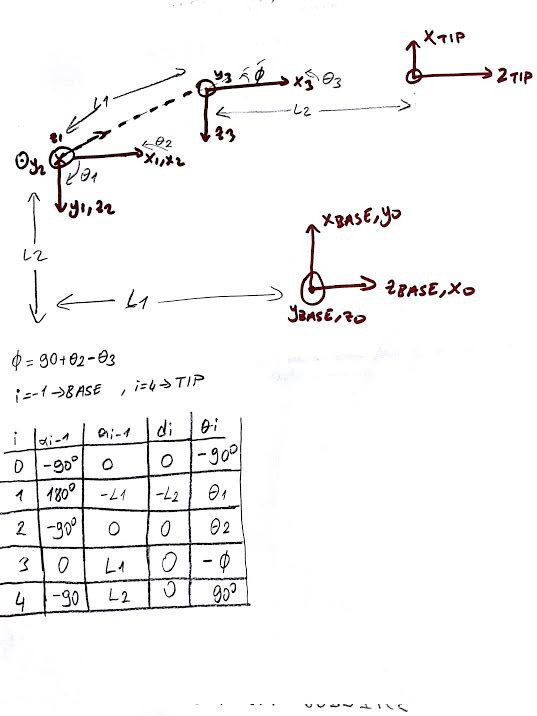 XTIP
ZTIP
y3
ϕ
X3
θ3
L1
L2
z3
z1
y2
θ2
X1,X2
θ1
y1,z2
L2
XBASE,y0
ZBASE,X0
yBASE,z0
L1
ϕ=90+θ2-θ3
i=-1→BASE , i=4→TIP
i αi-1 ai-1 di θi
0 -90° 0 0 -90°
1 180° -L1 -L2 θ1
2 -90° 0 0 θ2
3 0 L1 0 -ϕ
4 -90 L2 0 90°